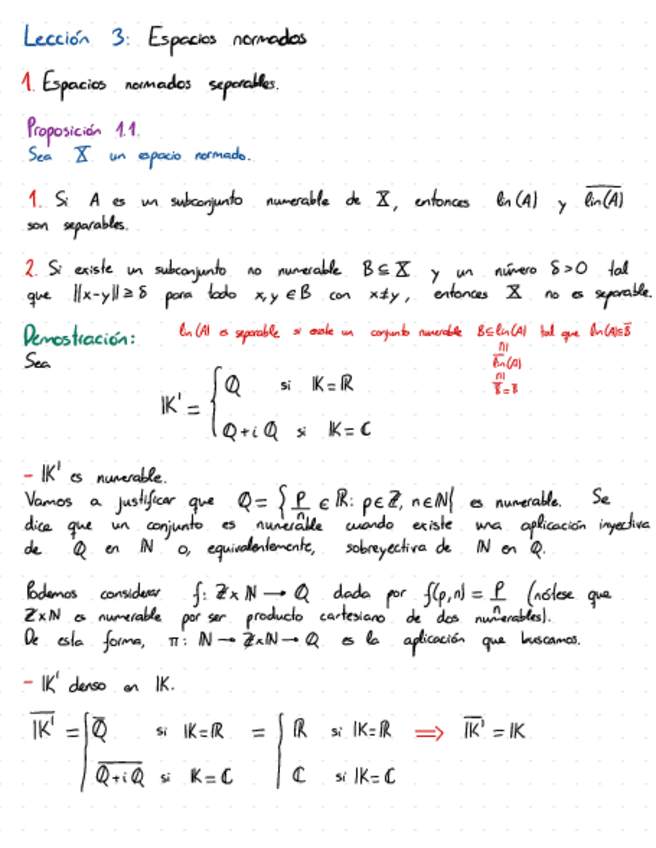 Lección 3: Espacios normados
1. Espacios normados separables.
Proposición 1.1.
Sea X un espacio normado.
1. Si A es un subconjunto numerable de X, entonces lin(A) y \overline{lin(A)}
son separables.
2. Si existe un subconjunto no numerable B ⊆ X y un número δ>0 tal
que ||x-y|| ≥ δ para todo x, y ∈ B con x≠y, entonces X no es separable.
Demostración: lin(A) es separable si existe un conjunto numerable B⊆lin(A) tal que lin(A)⊆\overline{B}
Sea
∩|
\overline{lin}(A)
∩|
\overline{\overline{B}}=\overline{B}
𝕂' = { ℚ si 𝕂=ℝ
ℚ+iℚ si 𝕂=ℂ
- 𝕂' es numerable.
Vamos a justificar que ℚ = { p/n ∈ ℝ: p∈ℤ, n∈ℕ} es numerable. Se
dice que un conjunto es numerable cuando existe una aplicación inyectiva
de ℚ en ℕ o, equivalentemente, sobreyectiva de ℕ en ℚ.
Podemos considerar f: ℤ×ℕ → ℚ dada por f(p,n) = p/n (nótese que
ℤ×ℕ es numerable por ser producto cartesiano de dos numerables).
De esta forma, π: ℕ → ℤ×ℕ → ℚ es la aplicación que buscamos.
- 𝕂' denso en 𝕂.
\overline{𝕂'} = { \overline{ℚ} si 𝕂=ℝ = { ℝ si 𝕂=ℝ ⟹ \overline{𝕂'} = 𝕂
\overline{ℚ+iℚ} si 𝕂=ℂ ℂ si 𝕂=ℂ